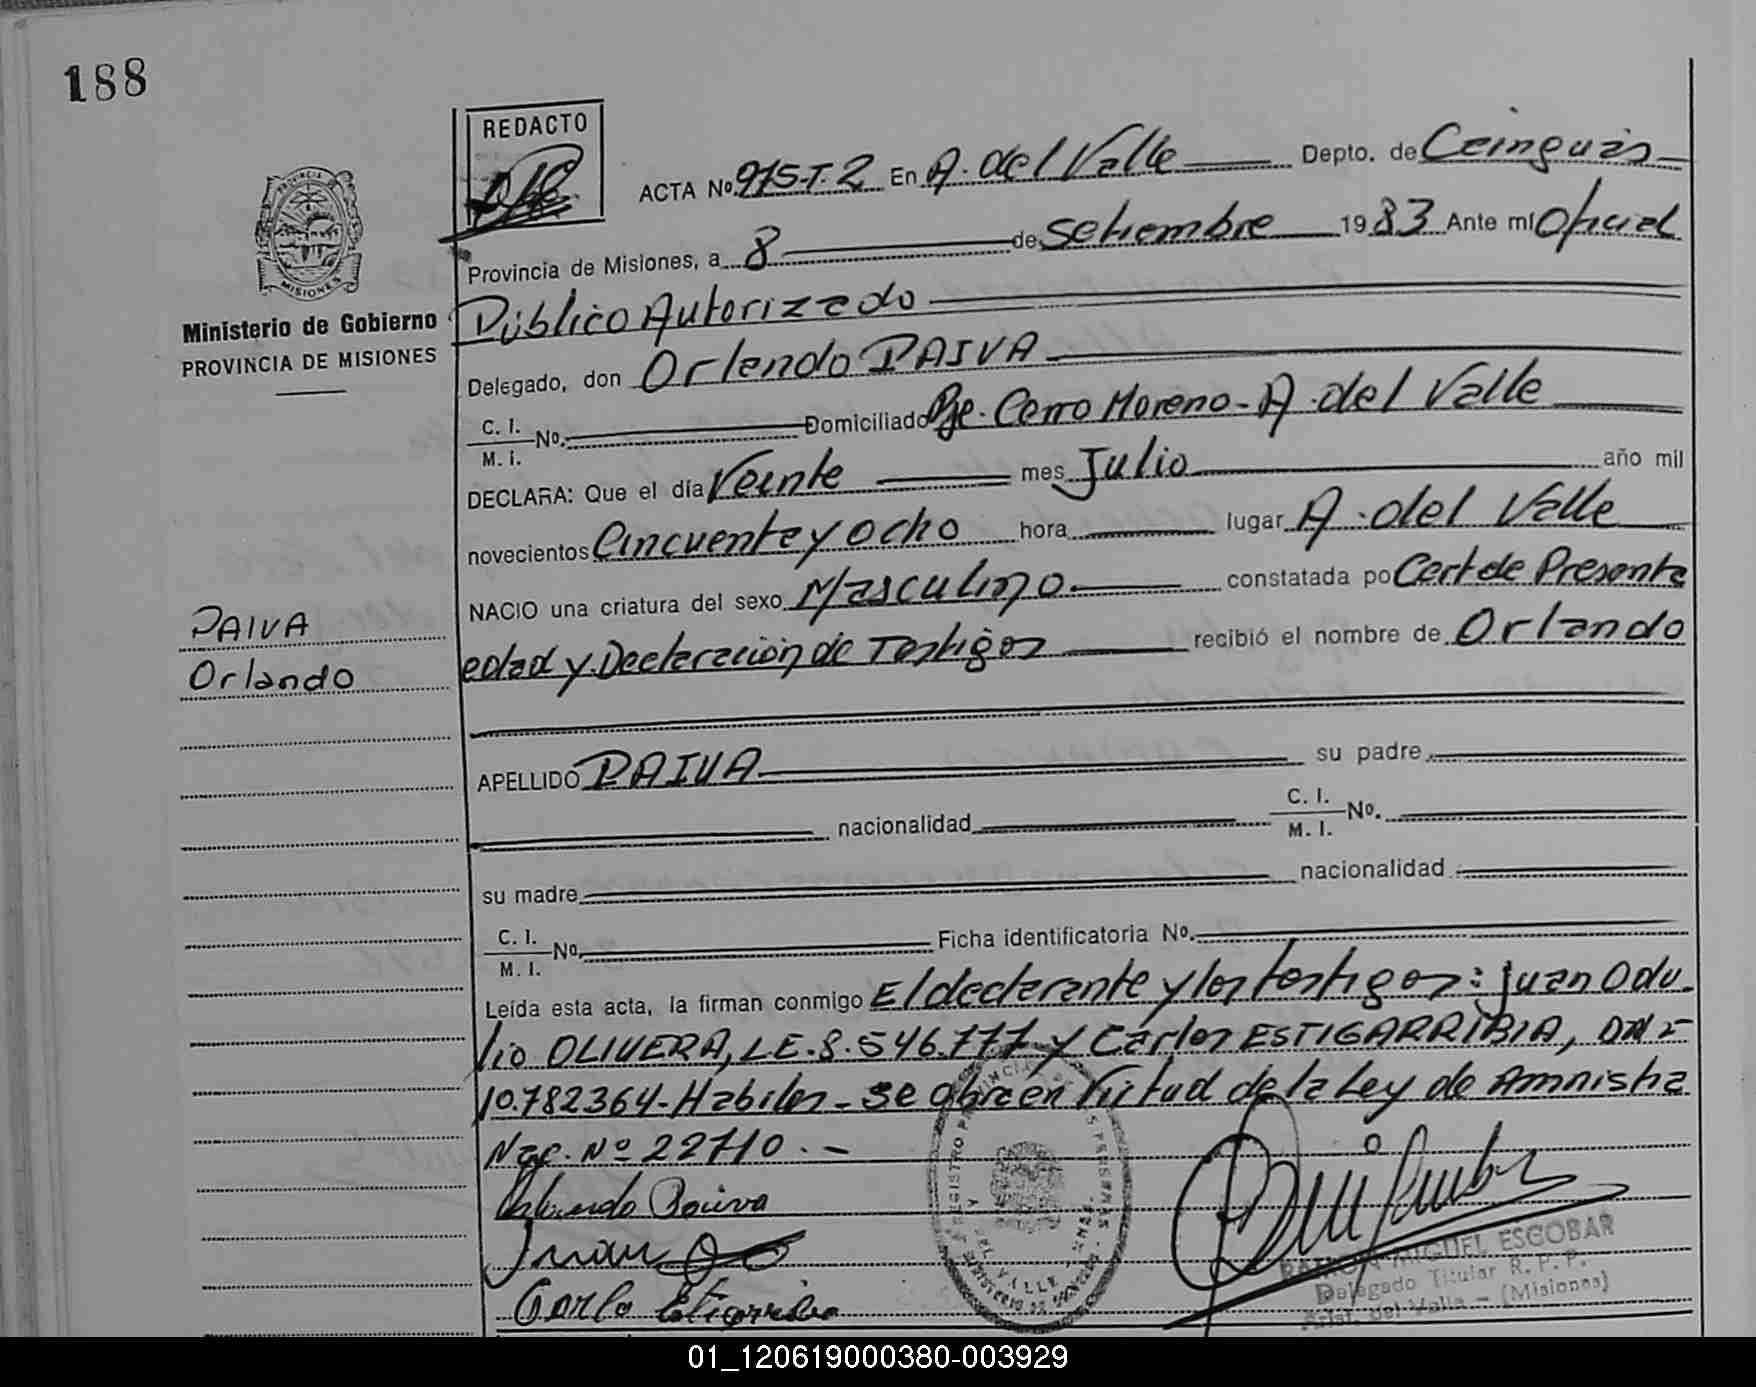 188
REDACTO
ACTA Nº 915-T.2 En A. del Valle Depto. de Cainguás
Provincia de Misiones, a 8 de setiembre 1983 Ante mí Oficial
Público Autorizado
PROVINCIA
MISIONES
Ministerio de Gobierno
PROVINCIA DE MISIONES
Delegado, don Orlando PAIVA
C. I.
M. I. Nº. Domiciliado Pje. Cerro Moreno - A. del Valle
DECLARA: Que el día Veinte mes Julio año mil
novecientos Cincuenta y ocho hora lugar A. del Valle
NACIO una criatura del sexo Masculino constatada po Cert de Presente
edad y Declaración de Testigos recibió el nombre de Orlando
PAIVA
Orlando
APELLIDO PAIVA su padre
nacionalidad C. I.
M. I. Nº.
su madre nacionalidad
C. I.
M. I. Nº. Ficha identificatoria Nº.
Leída esta acta, la firman conmigo El declarante y los testigos: Juan Odu-
lio OLIVERA, L.E. 8.546.777 y Carlos ESTIGARRIBIA, DNI
10.782364 - Habiles - Se labra en Virtud de la Ley de Amnistia
Nac. Nº 22710. -
Orlando Paiva
Juan
Carlo Estigarribia
RAMON MIGUEL ESCOBAR
Delegado Titular R. P. P.
Arist. del Valle - (Misiones)
01_120619000380-003929